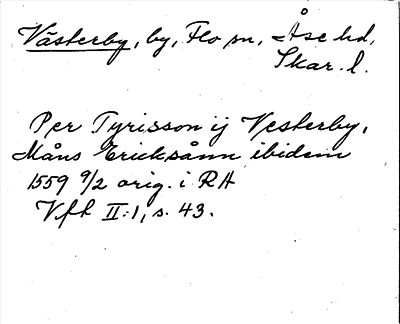 Västerby, by, Flo sn, Åse hd,
Skar. l.
Per Tyrisson ij Vesterby,
Måns Ericksånn ibidem
1559 9/2 orig. i RA
Vfh II:1, s. 43.